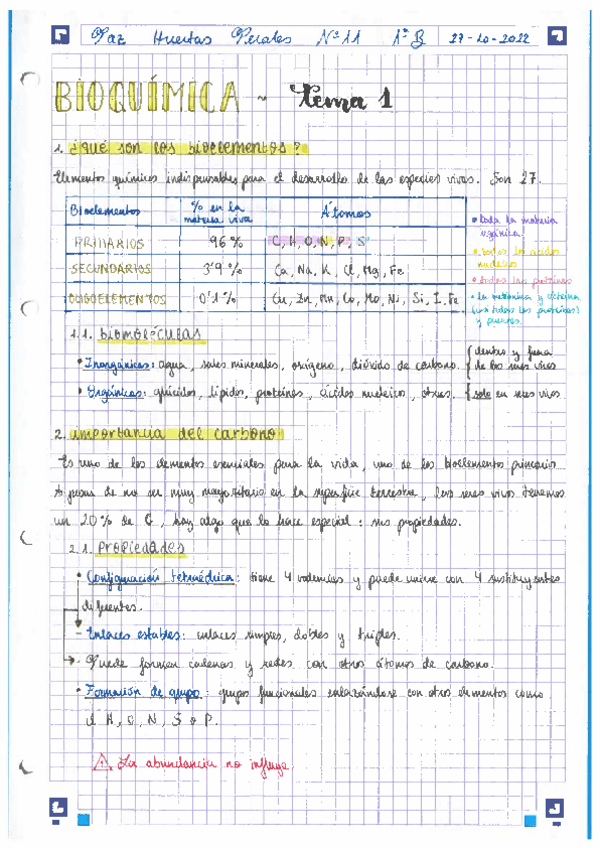 Paz Huertas Perales Nº11 1ºB 27-10-2022
BIOQUÍMICA ~ Tema 1
1. ¿Qué son los bioelementos?
Elementos químicos indispensables para el desarrollo de las especies vivas. Son 27.
Bioelementos % en la materia viva Átomos
PRIMARIOS 96% C, H, O, N, P, S
SECUNDARIOS 3'9% Ca, Na, K, Cl, Mg, Fe
OLIGOELEMENTOS 0'1% Cu, Zn, Mn, Co, Mo, Ni, Si, I, Fe
• toda la materia
orgánica
• todos los ácidos
nucleicos
• todas las proteínas
• la metionina y cisteína
(no todas las proteínas)
y puentes
1.1. biomoléculas
• Inorgánicas: agua, sales minerales, oxígeno, dióxido de carbono. { dentro y fuera
de los seres vivos
• Orgánicas: glúcidos, lípidos, proteínas, ácidos nucleicos, otros. { solo en seres vivos
2. importancia del carbono
Es uno de los elementos esenciales para la vida, uno de los bioelementos primarios.
A pesar de no ser muy mayoritario en la superficie terrestre, los seres vivos tenemos
un 20% de C, hay algo que lo hace especial: sus propiedades.
2.1. Propiedades
• Configuración tetraédrica: tiene 4 valencias y puede unirse con 4 sustituyentes
diferentes.
- Enlaces estables: enlaces simples, dobles y triples.
→ Puede formar cadenas y redes con otros átomos de carbono.
• Formación de grupo: grupos funcionales enlazándose con otros elementos como
el H, O, N, S o P.
⚠ La abundancia no influye